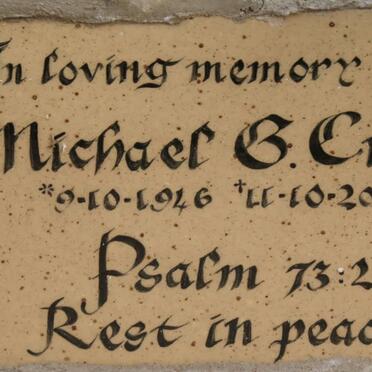 In loving memory
Michael G. C
*9-10-1946 †11-10-20
Psalm 73:2
Rest in peac